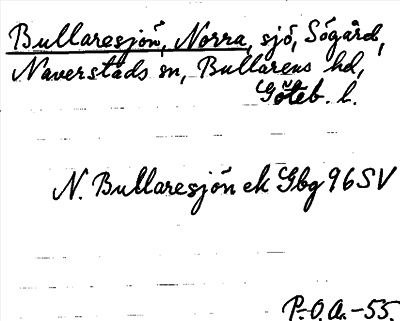 Bullaresjön, Norra, sjö, Sögård,
Naverstads sn, Bullarens hd,
Göteb. l.
N. Bullaresjön ek Gbg 96 SV
P.O.A.-55.